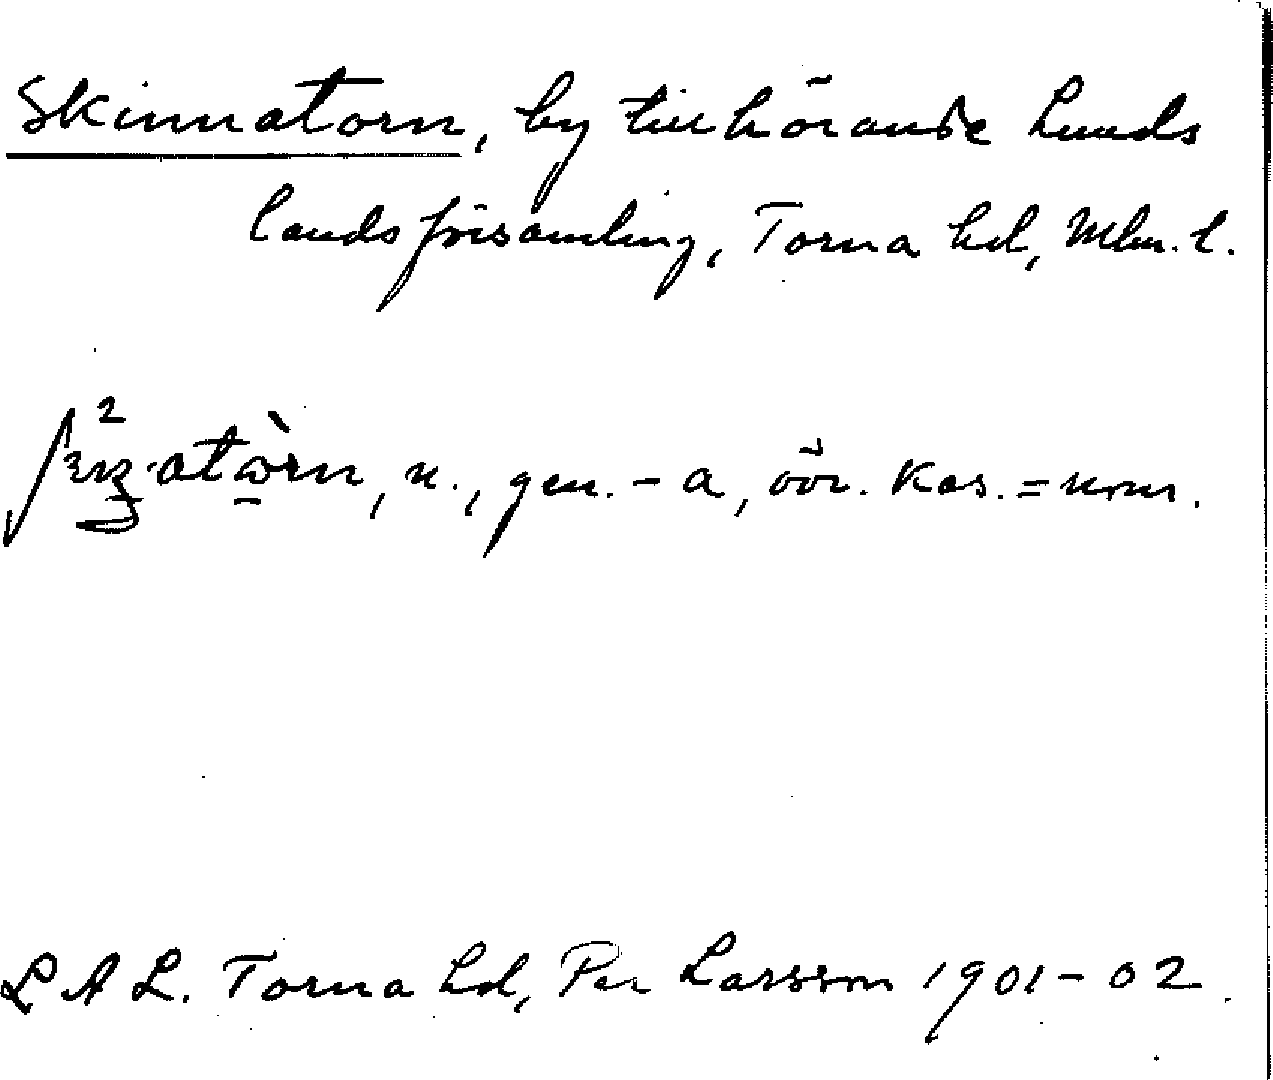 Skinnatorn, by tillhörande Lunds
landsförsamling, Torna hd, Mlm. l.
n., gen. -a, övr. kas. = nom.
LAL. Torna hd, Per Larsson 1901-02.